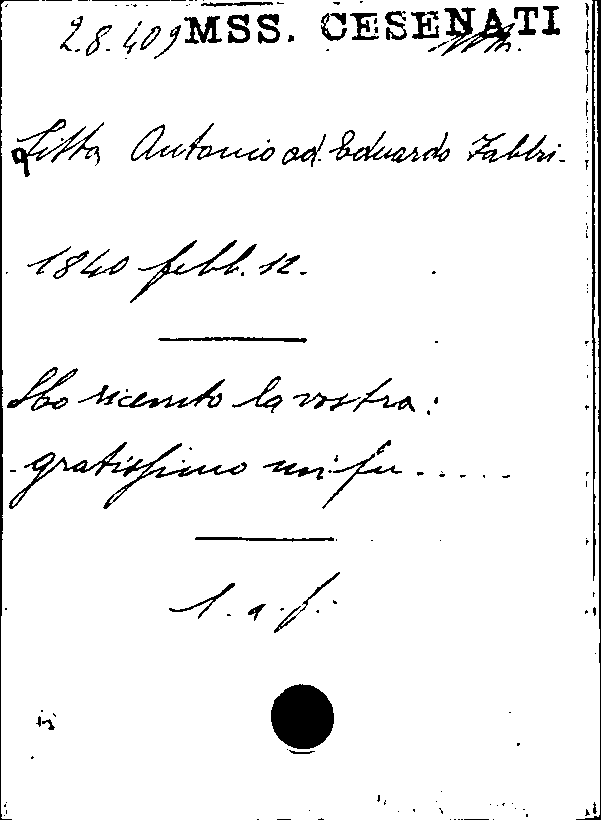 28.409 MSS. CESENATI
Litta Antonio ad Eduardo Fabbri.
1840 febb. 12.
Ho ricevuto la vostra:
gratissimo mi fu.....
l. a. f.